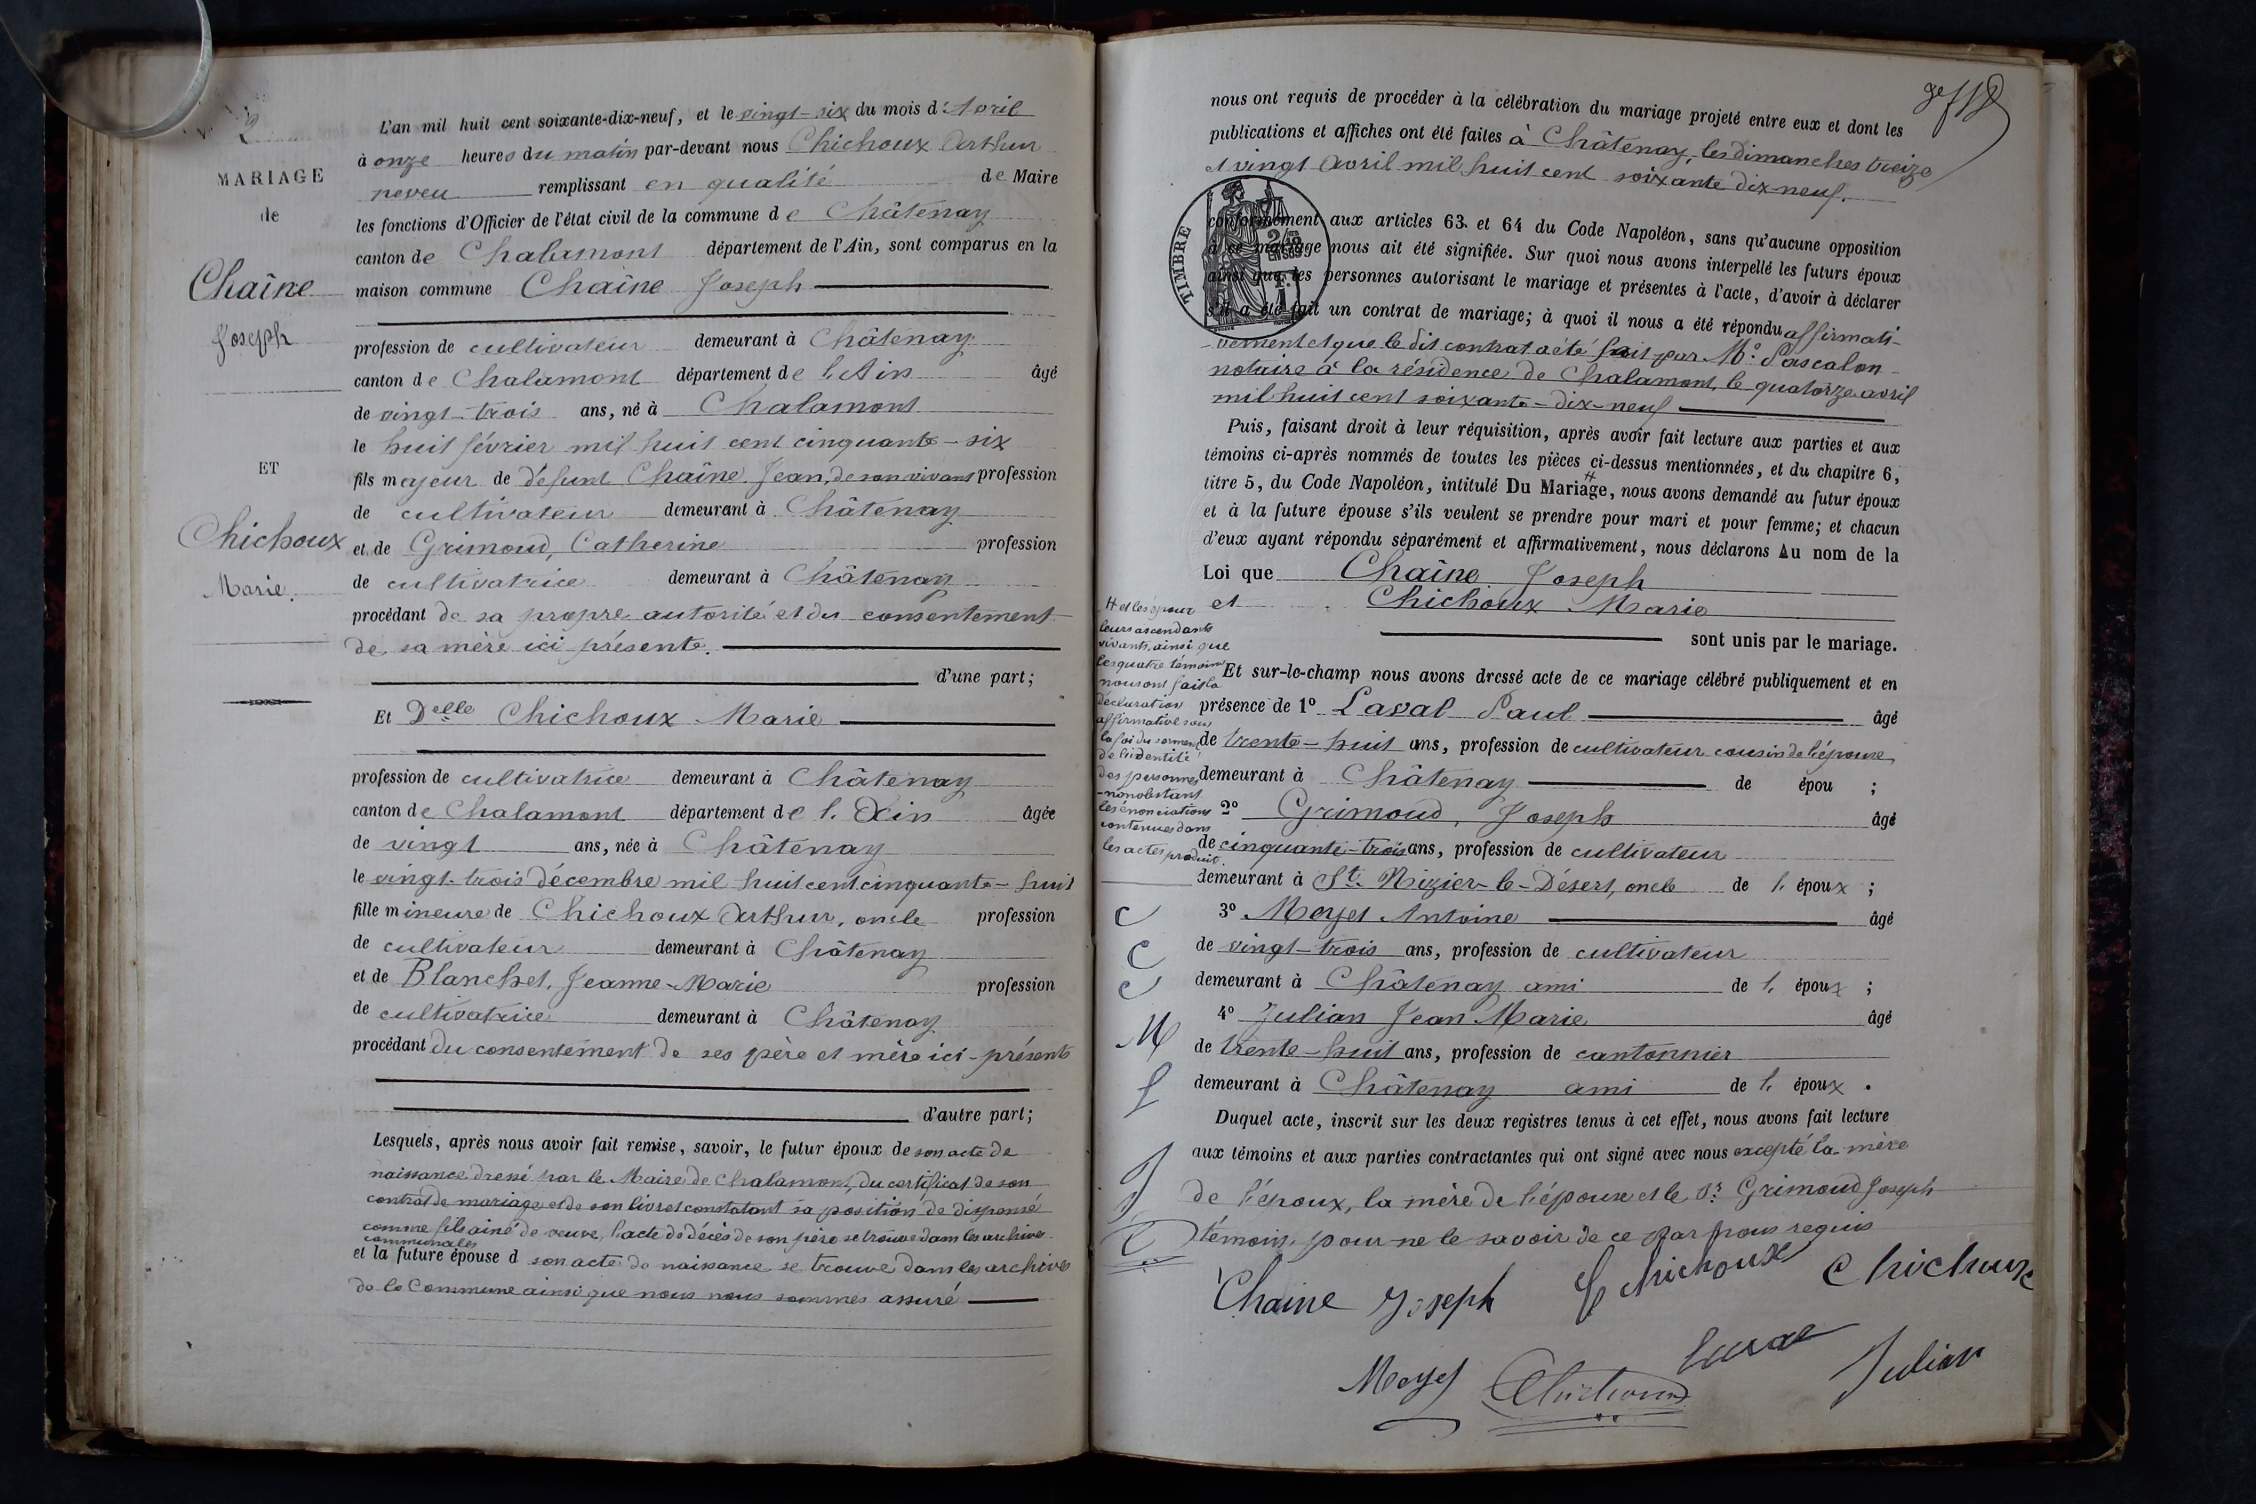 MARIAGE
de
Chaîne
Joseph
ET
Chichoux
Marie.
L'an mil huit cent soixante-dix-neuf, et le vingt-six du mois d'Avril
à onze heures du matin par-devant nous Chichoux Arthur
neveu remplissant en qualité de Maire
les fonctions d'Officier de l'état civil de la commune de Châtenay
canton de Chalamont département de l'Ain, sont comparus en la
maison commune Chaîne Joseph
profession de cultivateur demeurant à Châtenay
canton de Chalamont département de l'Ain âgé
de vingt-trois ans, né à Chalamont
le huit février mil huit cent cinquante-six
fils majeur de défunt Chaîne Jean, de son vivant profession
de cultivateur demeurant à Châtenay
et de Grimoud, Catherine profession
de cultivatrice demeurant à Châtenay
procédant de sa propre autorité et du consentement
de sa mère ici présente.
d'une part;
Et Delle Chichoux Marie
profession de cultivatrice demeurant à Châtenay
canton de Chalamont département de l'Ain âgée
de vingt ans, née à Châtenay
le vingt-trois décembre mil huit cent cinquante-huit
fille mineure de Chichoux Arthur, oncle profession
de cultivateur demeurant à Châtenay
et de Blanchet, Jeanne-Marie profession
de cultivatrice demeurant à Châtenay
procédant du consentement de ses père et mère ici-présents
d'autre part;
Lesquels, après nous avoir fait remise, savoir, le futur époux de son acte de
naissance dressé par le Maire de Chalamont, du certificat de son
contrat de mariage et de son livret constatant sa position de dispensé
comme fils aîné de veuve, l'acte de décès de son père se trouve dans les archives
communales
et la future épouse d son acte de naissance se trouve dans les archives
de la Commune ainsi que nous nous sommes assuré
nous ont requis de procéder à la célébration du mariage projeté entre eux et dont les
publications et affiches ont été faites à Châtenay, les dimanches treize
et vingt avril mil huit cent soixante dix-neuf.
TIMBRE
conformément aux articles 63 et 64 du Code Napoléon, sans qu'aucune opposition
à ce mariage nous ait été signifiée. Sur quoi nous avons interpellé les futurs époux
ainsi que les personnes autorisant le mariage et présentes à l'acte, d'avoir à déclarer
s'il a été fait un contrat de mariage; à quoi il nous a été répondu affirmati-
-vement et que le dit contrat a été fait par Me Pascalon
notaire à la résidence de Chalamont, le quatorze avril
mil huit cent soixante-dix-neuf
Puis, faisant droit à leur réquisition, après avoir fait lecture aux parties et aux
témoins ci-après nommés de toutes les pièces ci-dessus mentionnées, et du chapitre 6,
titre 5, du Code Napoléon, intitulé Du Mariage, # nous avons demandé au futur époux
et à la future épouse s'ils veulent se prendre pour mari et pour femme; et chacun
d'eux ayant répondu séparément et affirmativement, nous déclarons Au nom de la
Loi que Chaîne Joseph
et Chichoux Marie
sont unis par le mariage.
# et les époux
leurs ascendants
vivants, ainsi que
les quatre témoins
nous ont fait la
déclaration
affirmative sous
la foi du serment
de l'identité
des personnes
-nonobstant
les énonciations
contenues dans
les actes produit.
Et sur-le-champ nous avons dressé acte de ce mariage célébré publiquement et en
présence de 1º Laval Paul âgé
de trente-huit ans, profession de cultivateur cousin de l'épouse
demeurant à Châtenay de épou ;
2º Grimoud, Joseph âgé
de cinquante-trois ans, profession de cultivateur
demeurant à St. Nizier-le-Désert, oncle de l'époux ;
3º Moyet Antoine âgé
de vingt-trois ans, profession de cultivateur
demeurant à Châtenay ami de l'époux ;
4º Julian Jean Marie âgé
de trente-huit ans, profession de cantonnier
demeurant à Châtenay ami de l'époux.
C
C
C
M
Duquel acte, inscrit sur les deux registres tenus à cet effet, nous avons fait lecture
aux témoins et aux parties contractantes qui ont signé avec nous excepté la mère
de l'époux, la mère de l'épouse et le Sr Grimoud Joseph
témoins, pour ne le savoir de ce par nous requis
Chaine Joseph Chichoux Chichoux
Moyet Chichoux Laval Julian